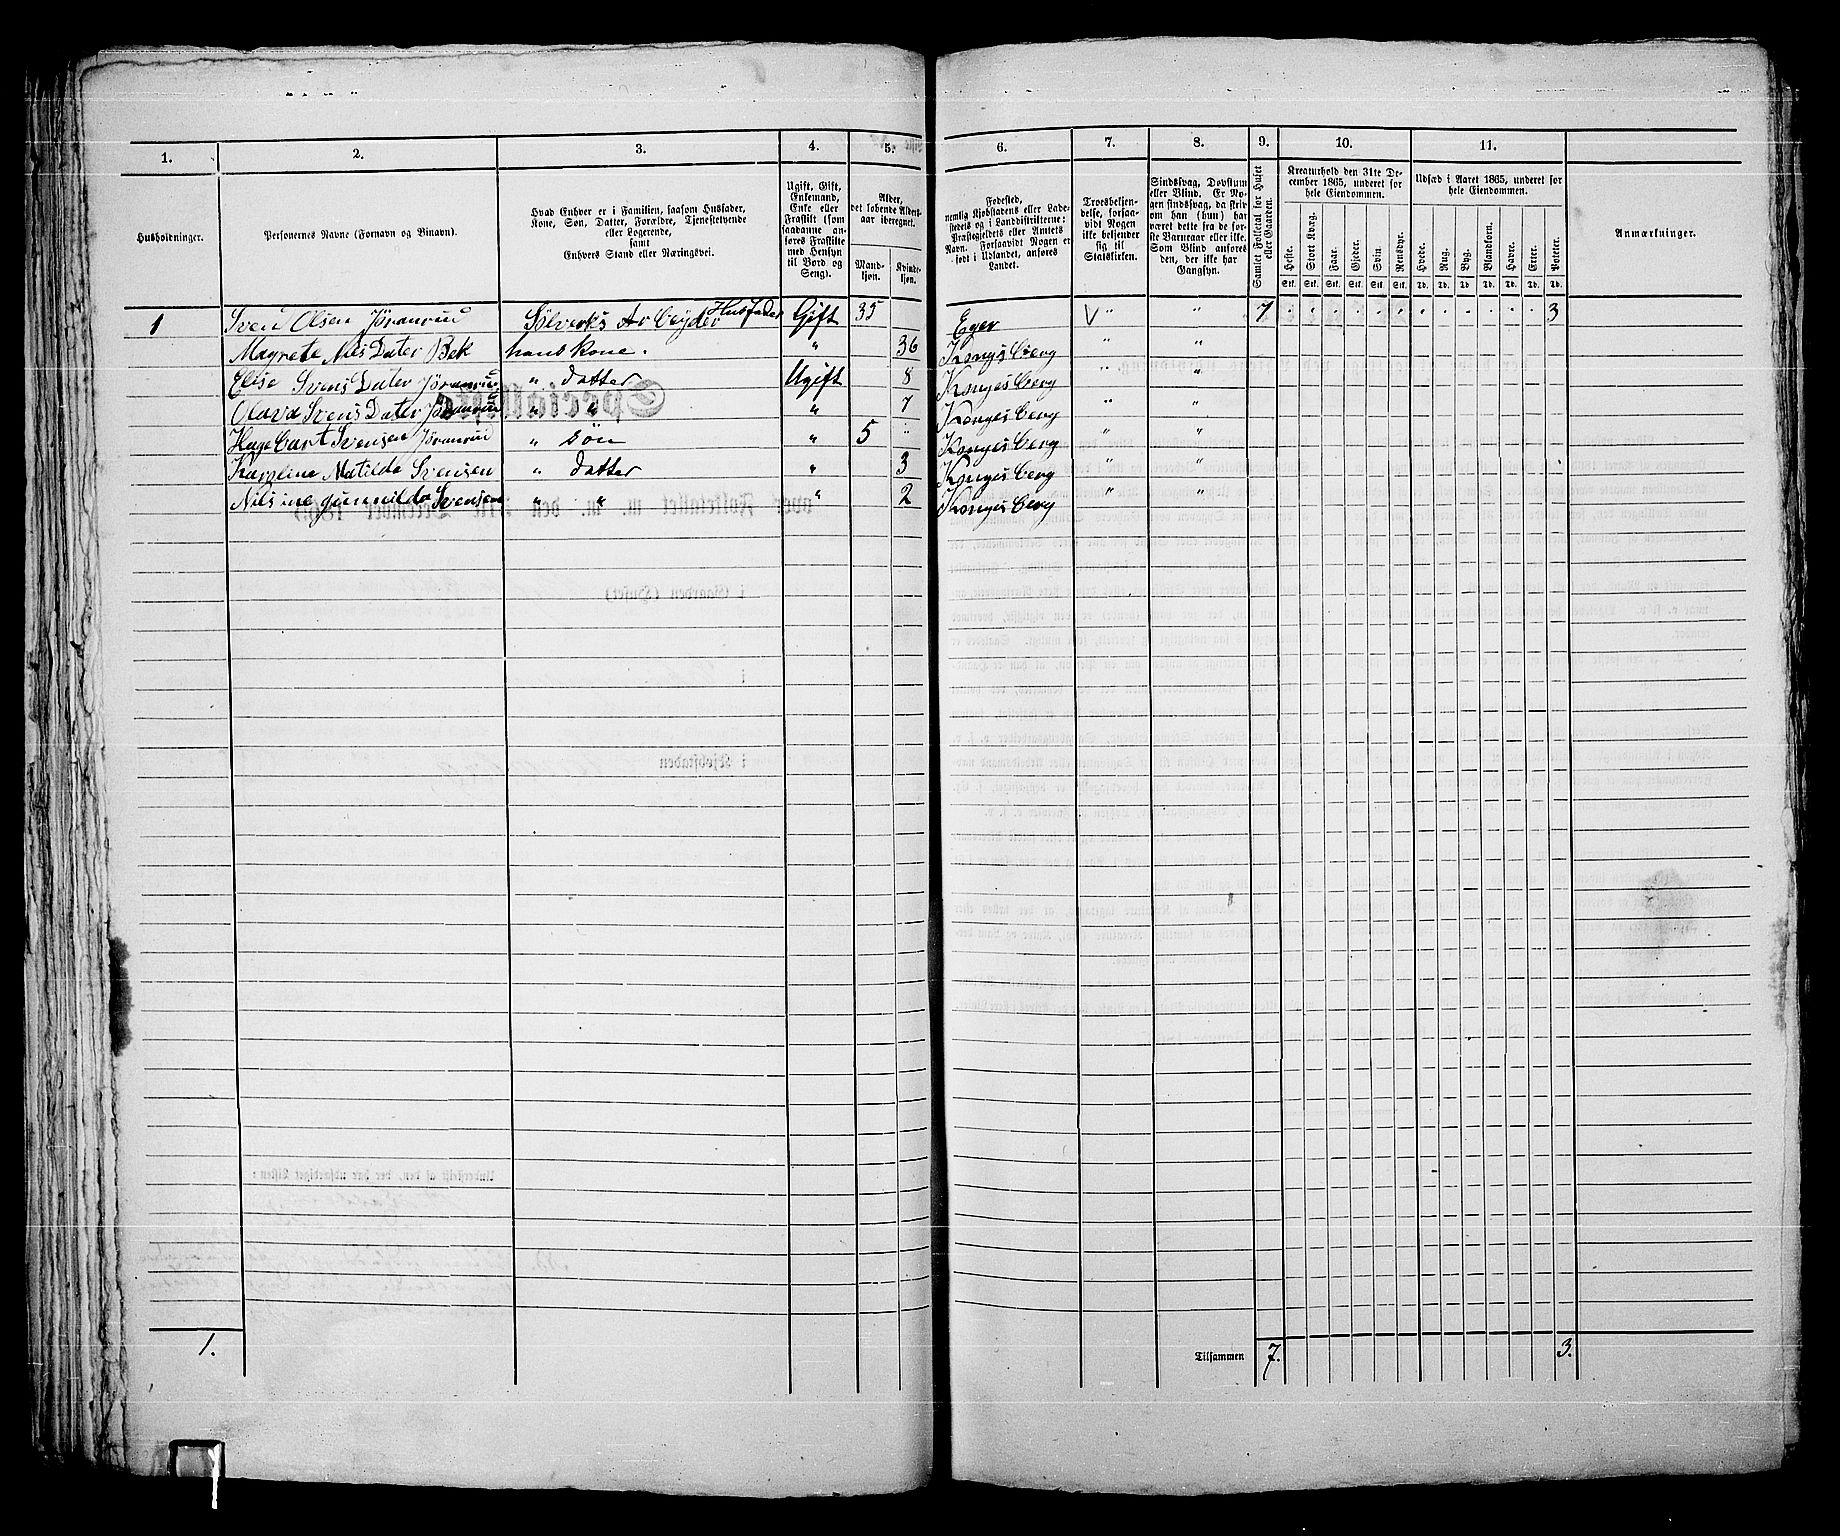 1. 2. 3. 4. 5. 6. 7. 8. 9. 10. 11.
Husholdninger.
Personernes Navne (Fornavn og Binavn).
Hvad Enhver er i Familien, saasom Husfader,
Kone, Søn, Datter, Forældre, Tjenestetyende
eller Logerende,
samt
Enhvers Stand eller Næringsvei.
Ugift, Gift,
Enkemand,
Enke eller
Fraskilt (som
saadanne an-
føres Fraskilte
med Hensyn
til Bord og
Seng).
Alder,
det løbende Alders-
aar iberegnet.
Mand-
kjøn.
Kvinde-
kjøn.
Fødested,
nemlig Kjøbstadens eller Lade-
stedets og i Landdistrikterne:
Præstegjeldets eller Amtets
Navn. Forsaavidt Nogen er
født i Udlandet, anføres
Landet.
Troesbekjen-
delse, forsaa-
vidt Nogen
ikke bekjender
sig til
Statskirken.
Sindssvag, Døvstum
eller Blind. Er No-
gen sindssvag, da skriv
om han (hun) har
været dette fra de før-
ste Barneaar eller ikke.
Som Blind anføres
den, der ikke har
Gangsyn.
Samlet Folketal for Huset
eller Gaarden.
Kreaturhold den 31te De-
cember 1865, underet for
hele Eiendommen.
Heste. Stort Kvæg. Faar. Gjeder. Svin. Rensdyr.
Stk. Stk. Stk. Stk. Stk. Stk.
Udsæd i Aaret 1865, underet for
hele Eiendommen.
Hvede. Rug. Byg. Blandkorn. Havre. Erter. Poteter.
Td. Td. Td. Td. Td. Td. Td.
Anmærkninger.
1 Sven Olsen Jöranrud Sölverks Arbeyder Husfader Gift 35 Eger V " 7 . . . . . . . . . . . . 3
Magrete Nils Dater Bek hans kone. " 36 Kongsberg " "
Elise Svens Dater Jöranrud " datter Ugift 8 Kongesberg " "
Olava Svens Dater Jöranrud " " " 7 Kongesberg " "
Hagebart Svensen Jöranrud " sön " 5 " Kongesberg " "
Karoline Matilde Svensen " datter " 3 Kongesberg " "
Nilsine gunnilda Svensen " " " 2 Kongesberg " "
1. Tilsammen 7. 3.